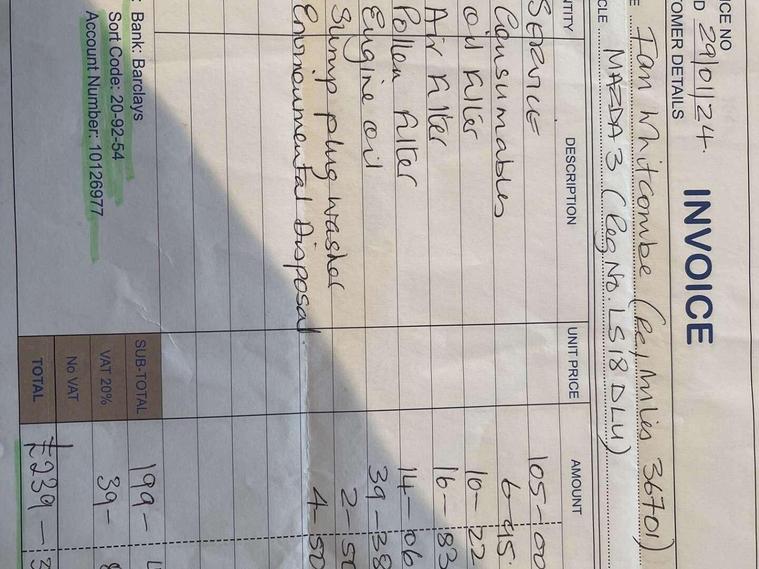 INVOICE
ICE NO
D 29/01/24.
TOMER DETAILS
E Ian Whitcombe (Re; Miles 36701)
CLE MAZDA 3 (Reg No. LS18 DLU)
NTITY DESCRIPTION UNIT PRICE AMOUNT
SERVICE 105-00
Consumables 6-45.
Oil Filter 10-22
Air Filter 16-83
Pollen Filter 14-06
Engine oil 39-38
Sump plug washer 2-50
Enviroumental Disposal. 4-50
: Bank: Barclays
Sort Code: 20-92-54
Account Number: 10126977
SUB-TOTAL 199-
VAT 20% 39-
No VAT
TOTAL £239-